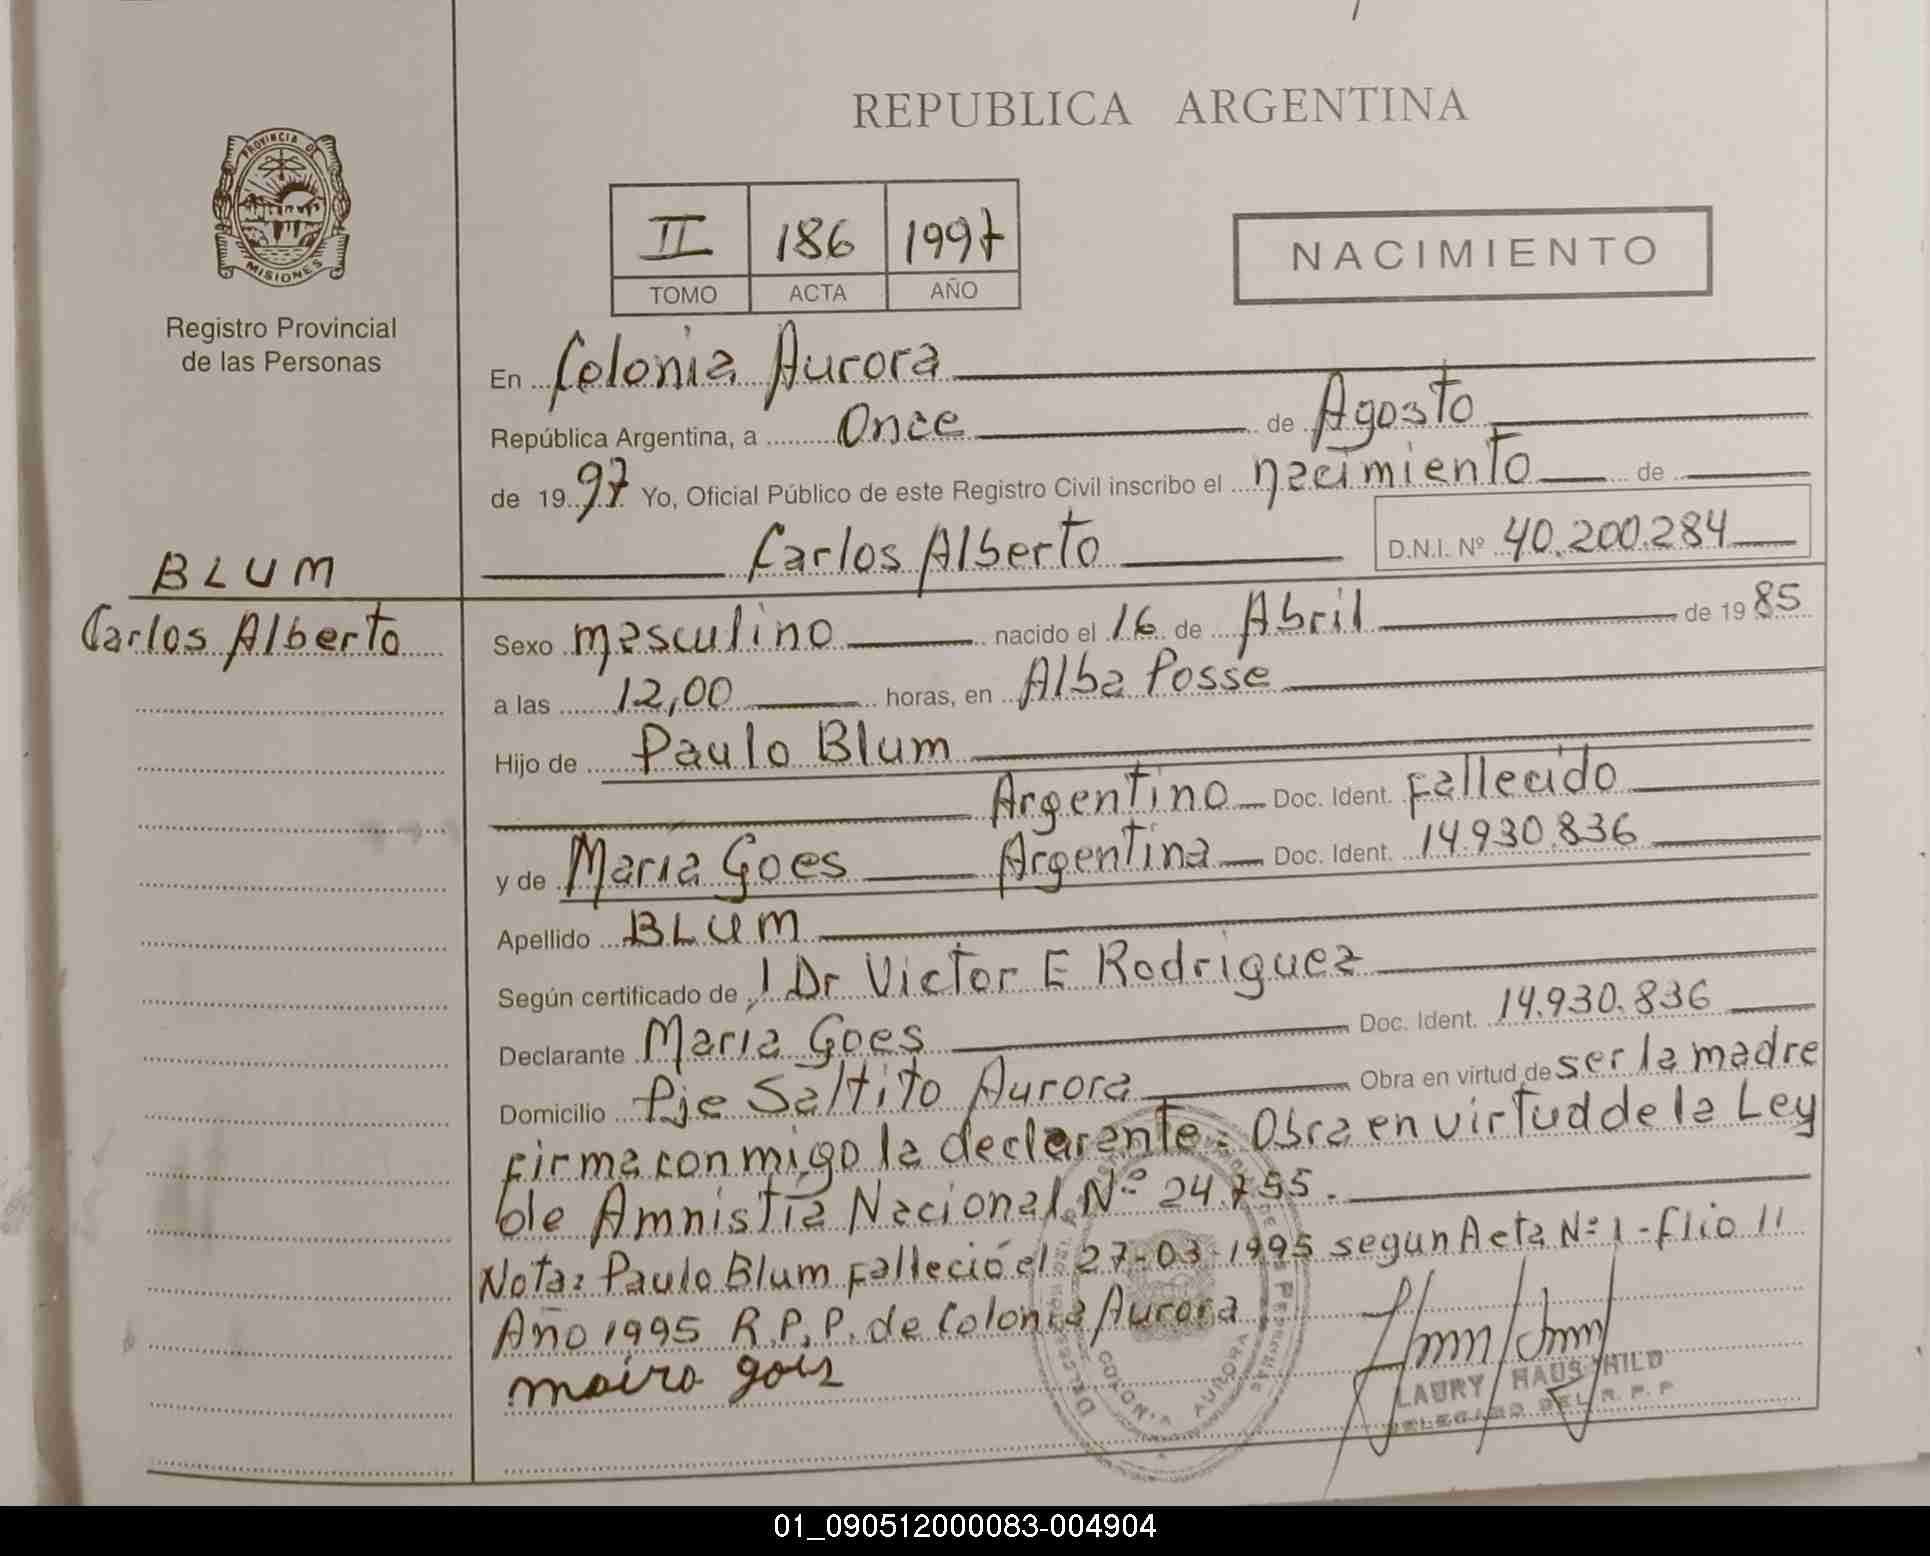 REPUBLICA ARGENTINA
PROVINCIA DE
MISIONES
Registro Provincial
de las Personas
II 186 1997
TOMO ACTA AÑO
NACIMIENTO
En Colonia Aurora
República Argentina, a Once de Agosto
de 1997 Yo, Oficial Público de este Registro Civil inscribo el nacimiento de
Carlos Alberto D.N.I. Nº 40.200.284
BLUM
Carlos Alberto
Sexo masculino nacido el 16 de Abril de 1985
a las 12,00 horas, en Alba Posse
Hijo de Paulo Blum
Argentino Doc. Ident. Fallecido
y de María Goes Argentina Doc. Ident. 14.930.836
Apellido BLUM
Según certificado de Dr Victor E Rodriguez
Declarante María Goes Doc. Ident. 14.930.836
Domicilio Pje Saltito Aurora Obra en virtud de ser la madre
Firma conmigo la declarante. Obra en virtud de la Ley
de Amnistía Nacional Nº 24.755.
Nota: Paulo Blum Falleció el 27-03-1995 segun Acta Nº 1 - flio 11
Año 1995 R.P.P. de Colonia Aurora
COLONIA AURORA
LAURY HAUSCHILD
DELEGADO DEL R.P.P
01_090512000083-004904